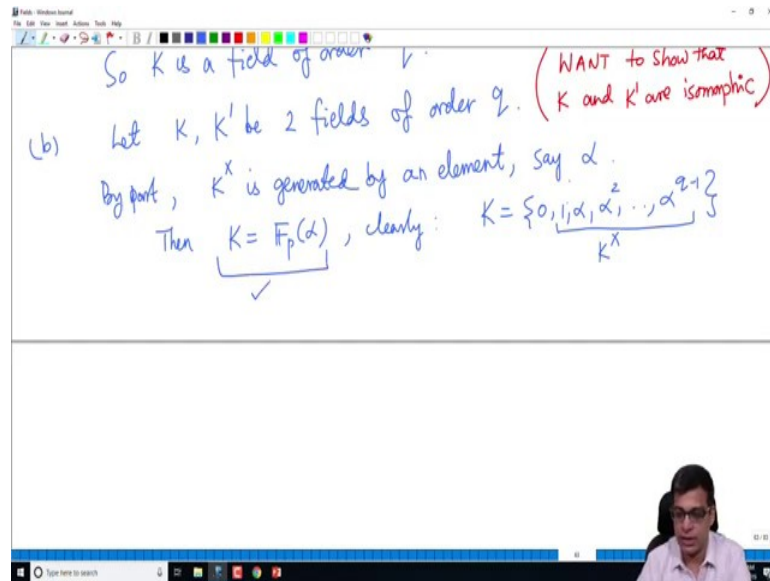 Fields - Windows Journal
File Edit View Insert Actions Tools Help
So K is a field of order q.
(WANT to show that
K and K' are isomorphic)
(b) Let K, K' be 2 fields of order q.
By part, K^× is generated by an element, say α.
Then K = 𝔽_p(α), clearly: K = {0, 1, α, α², .., α^{q-1}}
K^×
✓
63
63 / 63
Type here to search